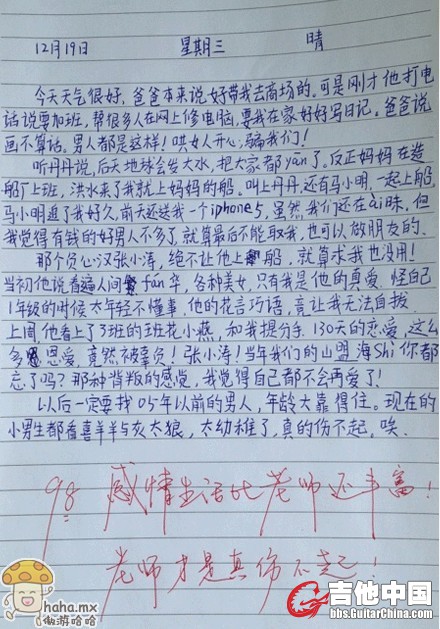 12月19日 星期三 晴
今天天气很好，爸爸本来说好带我去商场的。可是刚才他打电
话说要加班，帮很多人在网上修电脑，要我在家好好写日记。爸爸说
画不算话，男人都是这样！哄女人开心，骗我们！
听丹丹说，后天地球会发大水，把大家都yān了。反正妈妈在造
船厂上班，洪水来了我就上妈妈的船。叫上丹丹，还有马小明，一起上船，
马小明追了我好久，前天还送我一个iphone5，虽然我们还在ài昧，但
我觉得有钱的好男人不多了，就算最后不能取我，也可以做朋友的。
那个负心汉张小涛，绝不让他上船，就算求我也没用！
当初他说看遍人间fán华，各种美女，只有我是他的真爱，怪自己
1年级的时候太年轻不懂事，他的花言巧语，竟让我无法自拔，
上周，他看上了3班的班花小燕，和我提分手，130天的恋爱，这么
多恩爱，竟然被辜负！张小涛！当年我们的山盟海Shì你都
忘了吗？那种背叛的感觉，我觉得自己都不会再爱了！
以后一定要找05年以前的男人，年龄大靠得住。现在的
小男生都看喜羊羊与灰太狼，太幼稚了，真的伤不起，唉。
98 感情生活比老师还丰富！
老师才是真伤不起！
haha.mx
傲游哈哈
吉他中国
bbs.GuitarChina.com